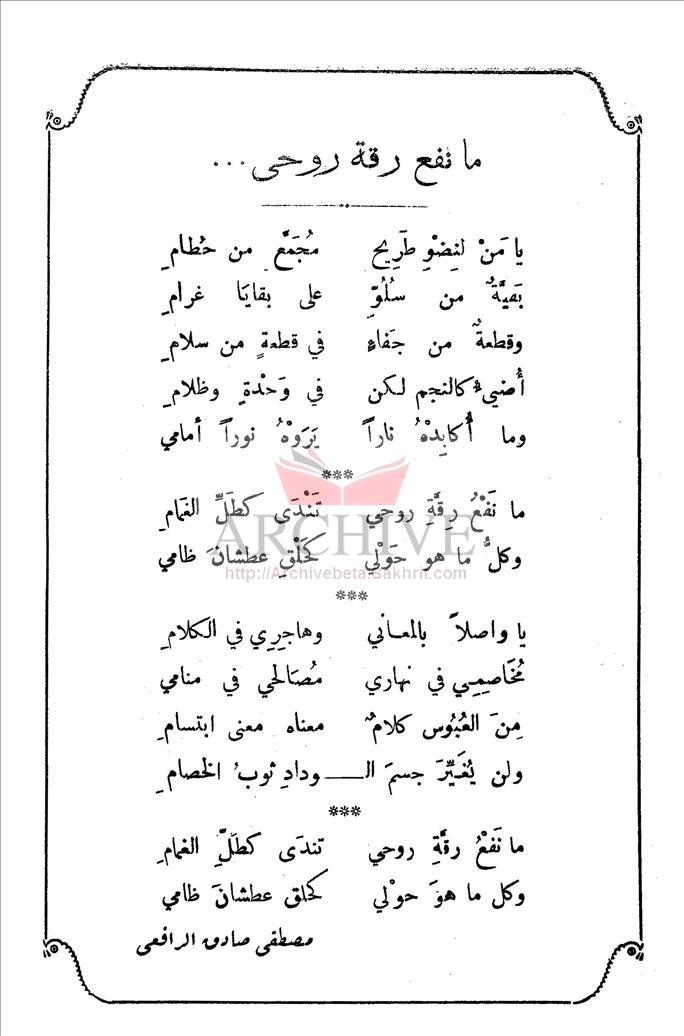 ما نفع رقة روحى ...
يا مَنْ لنِضْوٍ طَرِيحٍ مُجَمَّعٍ من حُطامِ
بَقيَّةٌ من سُلُوٍّ على بقايَا غرامِ
وقطعةٌ من جَفاءٍ في قطعةٍ من سلامِ
أُضيءُ كالنجم لكن في وَحْدةٍ وظلامِ
وما أُكابِدْهُ ناراً يَرَوْهُ نوراً أمامي
***
ما نَفْعُ رِقَّةِ روحي تَنْدَى كطَلِّ الغَمامِ
وكلُّ ما هو حَوْلي كحَلْقِ عطشانَ ظامي
ARCHIVE
http://Archivebeta.Sakhrit.com
***
يا واصلاً بالمعاني وهاجرِي في الكلامِ
مُخَاصِمِي في نهاري مُصَالحِي في منامي
مِنَ العُبُوس كلامٌ معناه معنى ابتسامِ
ولن يُغَيِّرَ جسمَ الـــودادِ ثوبُ الخصامِ
***
ما نَفْعُ رقَّةِ روحي تندَى كطَلِّ الغمامِ
وكل ما هوَ حوْلي كحلق عطشانَ ظامي
مصطفى صادق الرافعى